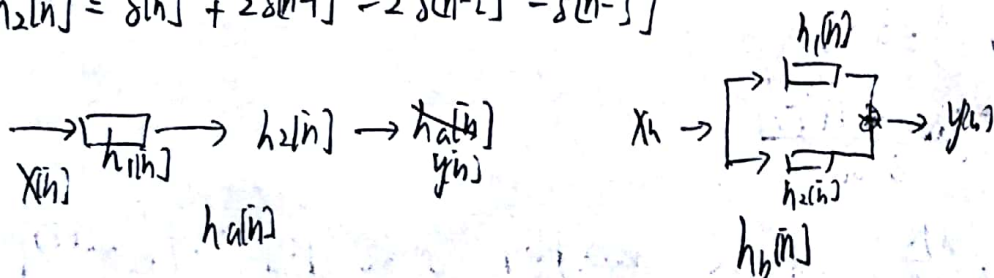 h₂[n] = δ[n] + 2δ[n-1] - 2δ[n-2] - δ[n-3]
h₁[n]
h₂[n]
h₁[n]
X[n]
y[n]
Xn
y[n]
h₂[n]
ha[n]
hb[n]